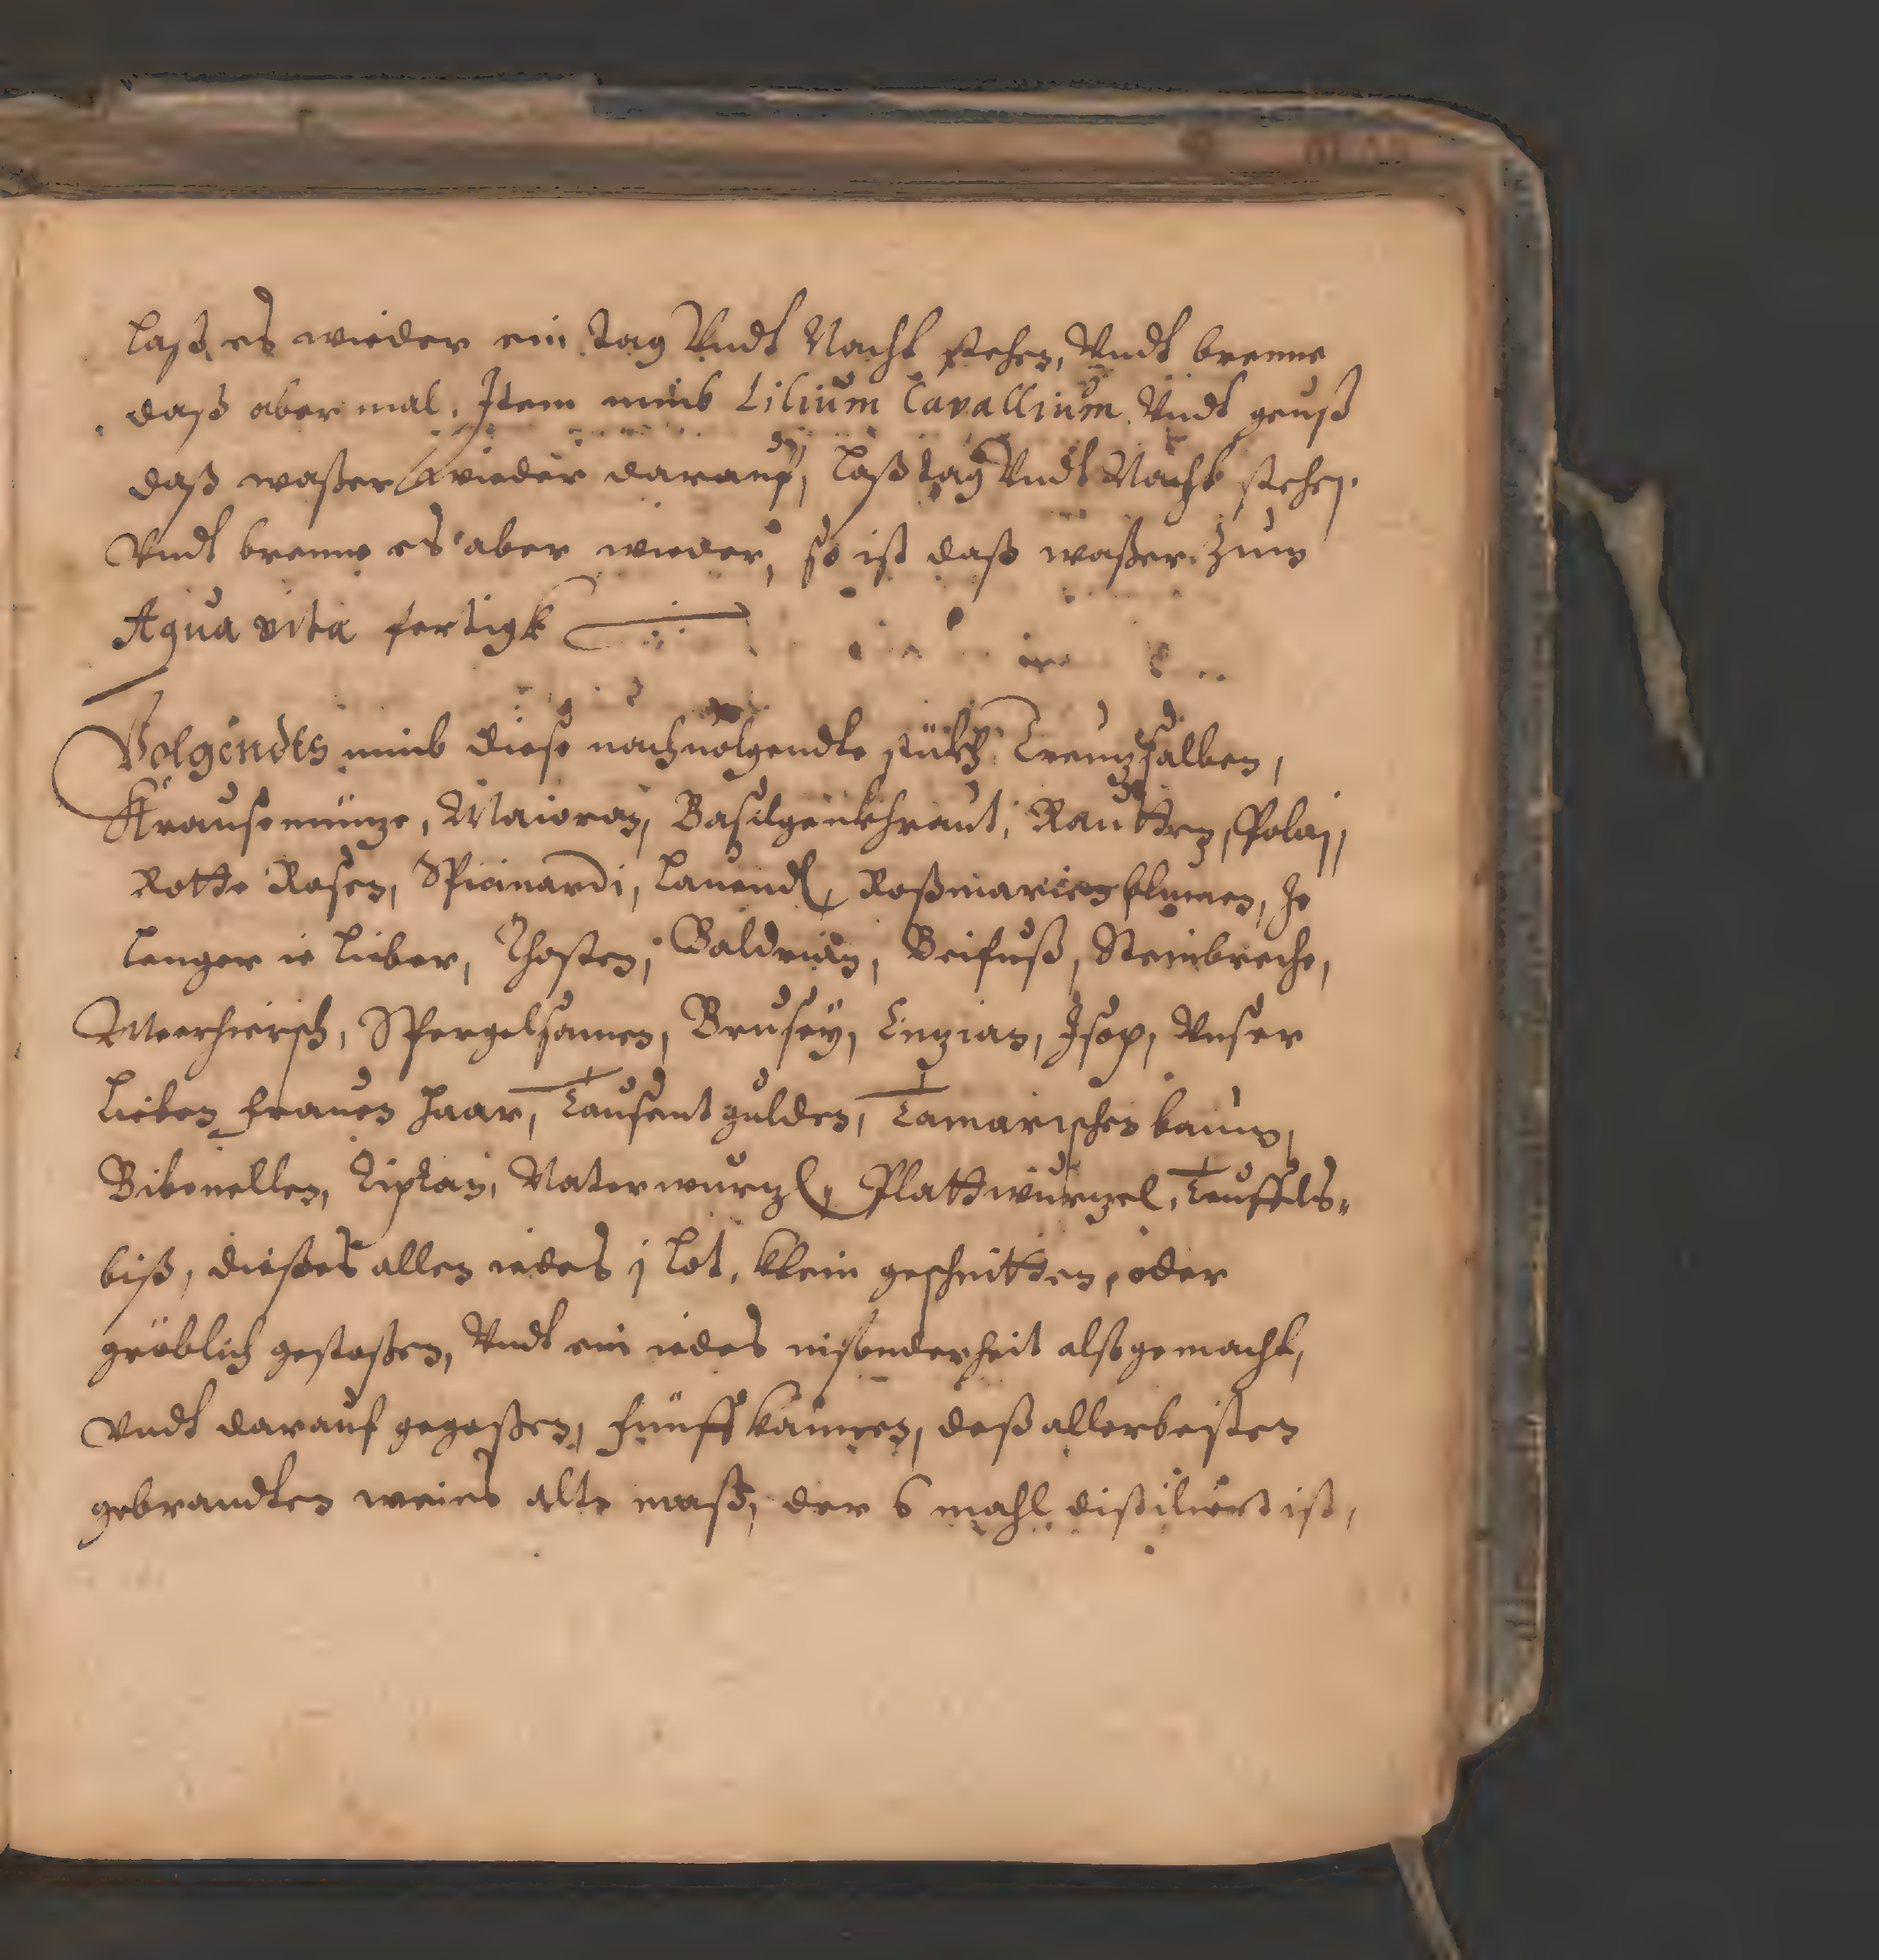 Laß es wieder ein tag Vndt Nacht stehen, Vndt brenne
daß aber mal. Item nimb Lilium Cavallium. Vndt geuß
daß waßer wieder darauf, laß tag Vndt Nacht stehen.
Vndt brenne es aber wieder, so ist daß waßer zum
Aqua vita fertigk
Volgendes nimb diese nachuolgendte stückh Creutzsalben,
Krausemüntze, Maioran, Basilgenkhraut, Rautten, Polai,
Rotte Rosen, Spicinardi, Lauendl, Roßmarien blumen, Je
lenger ie lieber, Thosten, Baldrian, Beifuß, Steinbreche,
Meerhiersch, Spergelsamen, Brusey, Entzian, Isop, Vnser
lieben frauen haar, Tausent gulden, Tamarischen baum,
Bibenellen, Diptan, Naterwurtzl, Plattwurtzel, Teuffels-
biß, dießes allen iedes j lot, klein geschnitten, oder
gröblich gestoßen, Vndt ein iedes insonderheit alß gemacht,
Vndt darauf gegoßen, fünff kannen, deß allerbesten
gebrandten weins alte maß, der 6 mahl distiliert ist,